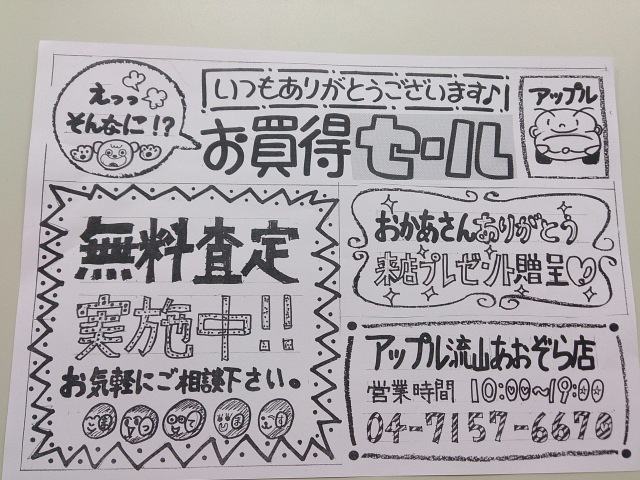 えっっ
そんなに!?
いつもありがとうございます♪
お買得セール
アップル
無料査定
実施中!!
お気軽にご相談下さい。
おかあさんありがとう
来店プレゼント贈呈♡
アップル流山あおぞら店
営業時間 10:00〜19:00
04-7157-6670